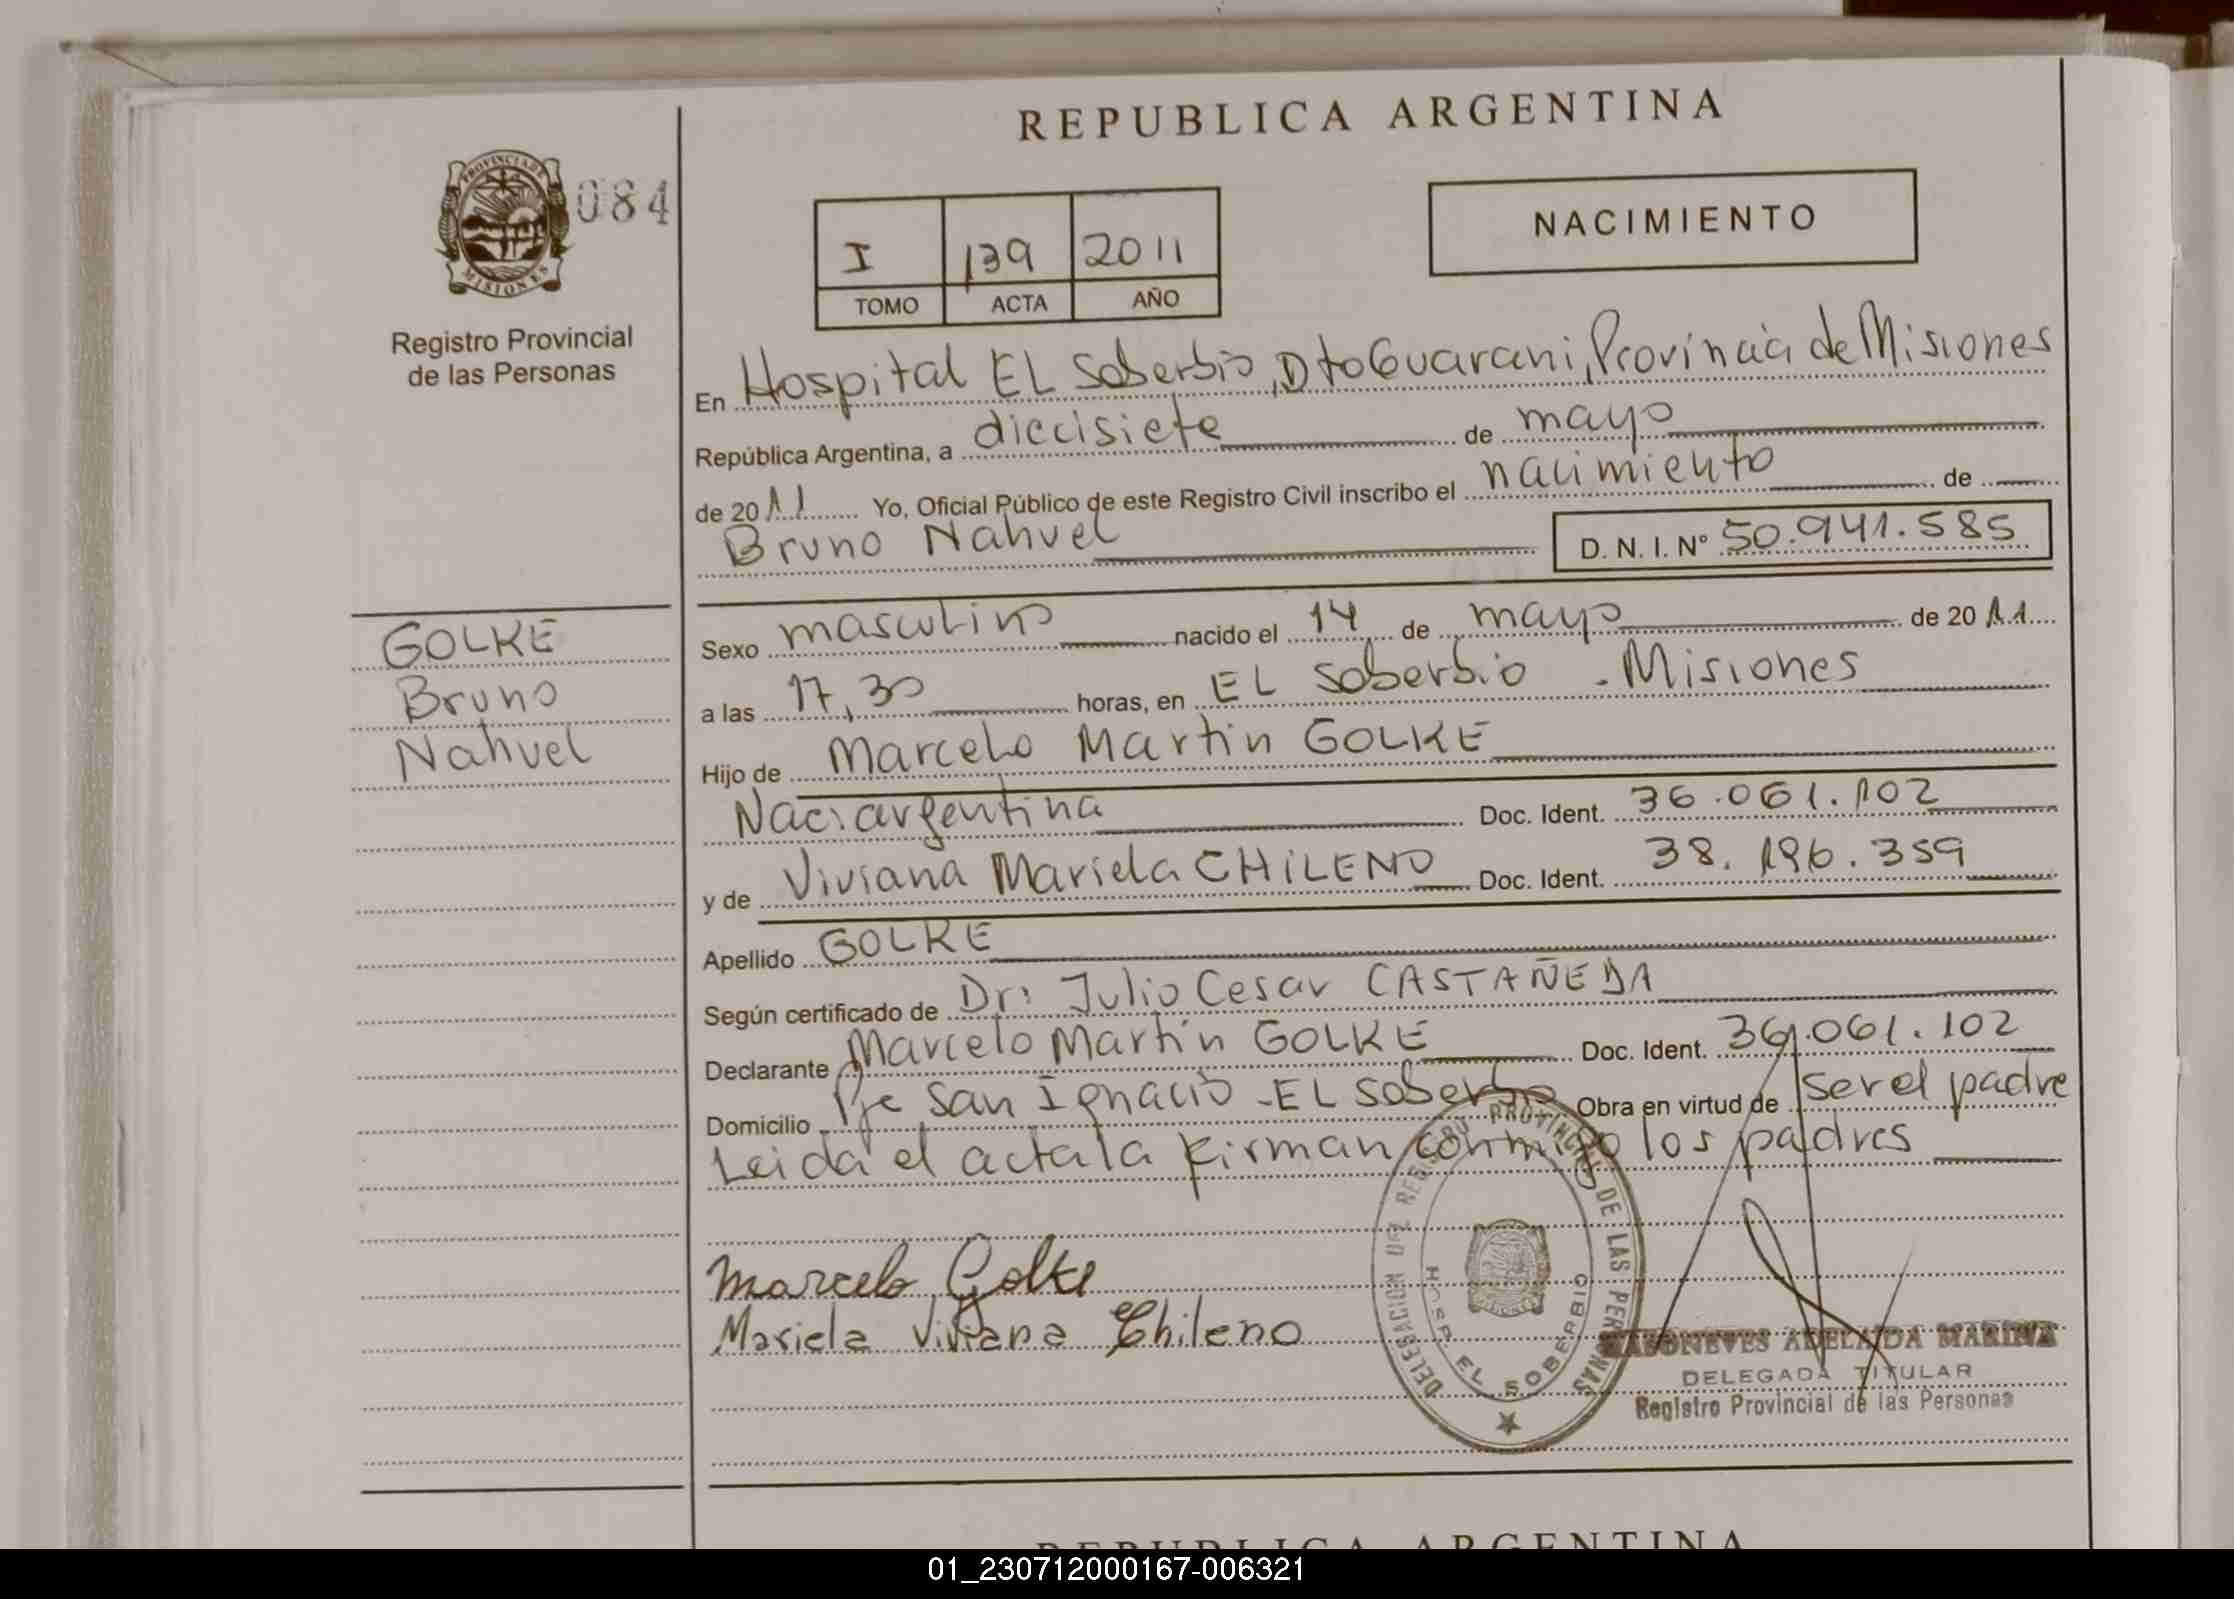 REPUBLICA ARGENTINA
PROVINCIA DE
MISIONES
084
Registro Provincial
de las Personas
I 139 2011
TOMO ACTA AÑO
NACIMIENTO
En Hospital EL Soberbio, Dto Guarani, Provincia de Misiones
República Argentina, a diecisiete de mayo
de 2011 Yo, Oficial Público de este Registro Civil inscribo el nacimiento de
Bruno Nahuel D. N. I. N° 50.941.585
GOLKE
Bruno
Nahuel
Sexo masculino nacido el 14 de mayo de 2011
a las 17,30 horas, en EL Soberbio - Misiones
Hijo de Marcelo Martin GOLKE
Nac: argentina Doc. Ident. 36.061.102
y de Viviana Mariela CHiLENO Doc. Ident. 38.196.359
Apellido GOLKE
Según certificado de Dr: Julio Cesar CASTAÑEDA
Declarante Marcelo Martín GOLKE Doc. Ident. 36.061.102
Domicilio Pje San Ignacio - EL Soberbio Obra en virtud de ser el padre
Leida el acta la firman conmigo los padres
Marcelo Golke
Mariela Viviana Chileno
DELEGACION DEL REGISTRO PROVINCIAL DE LAS PERSONAS
HOSP. EL SOBERBIO
MISIONES
ADELAIDA MARINA
DELEGADA TITULAR
Registro Provincial de las Personas
REPUBLICA ARGENTINA
01_230712000167-006321